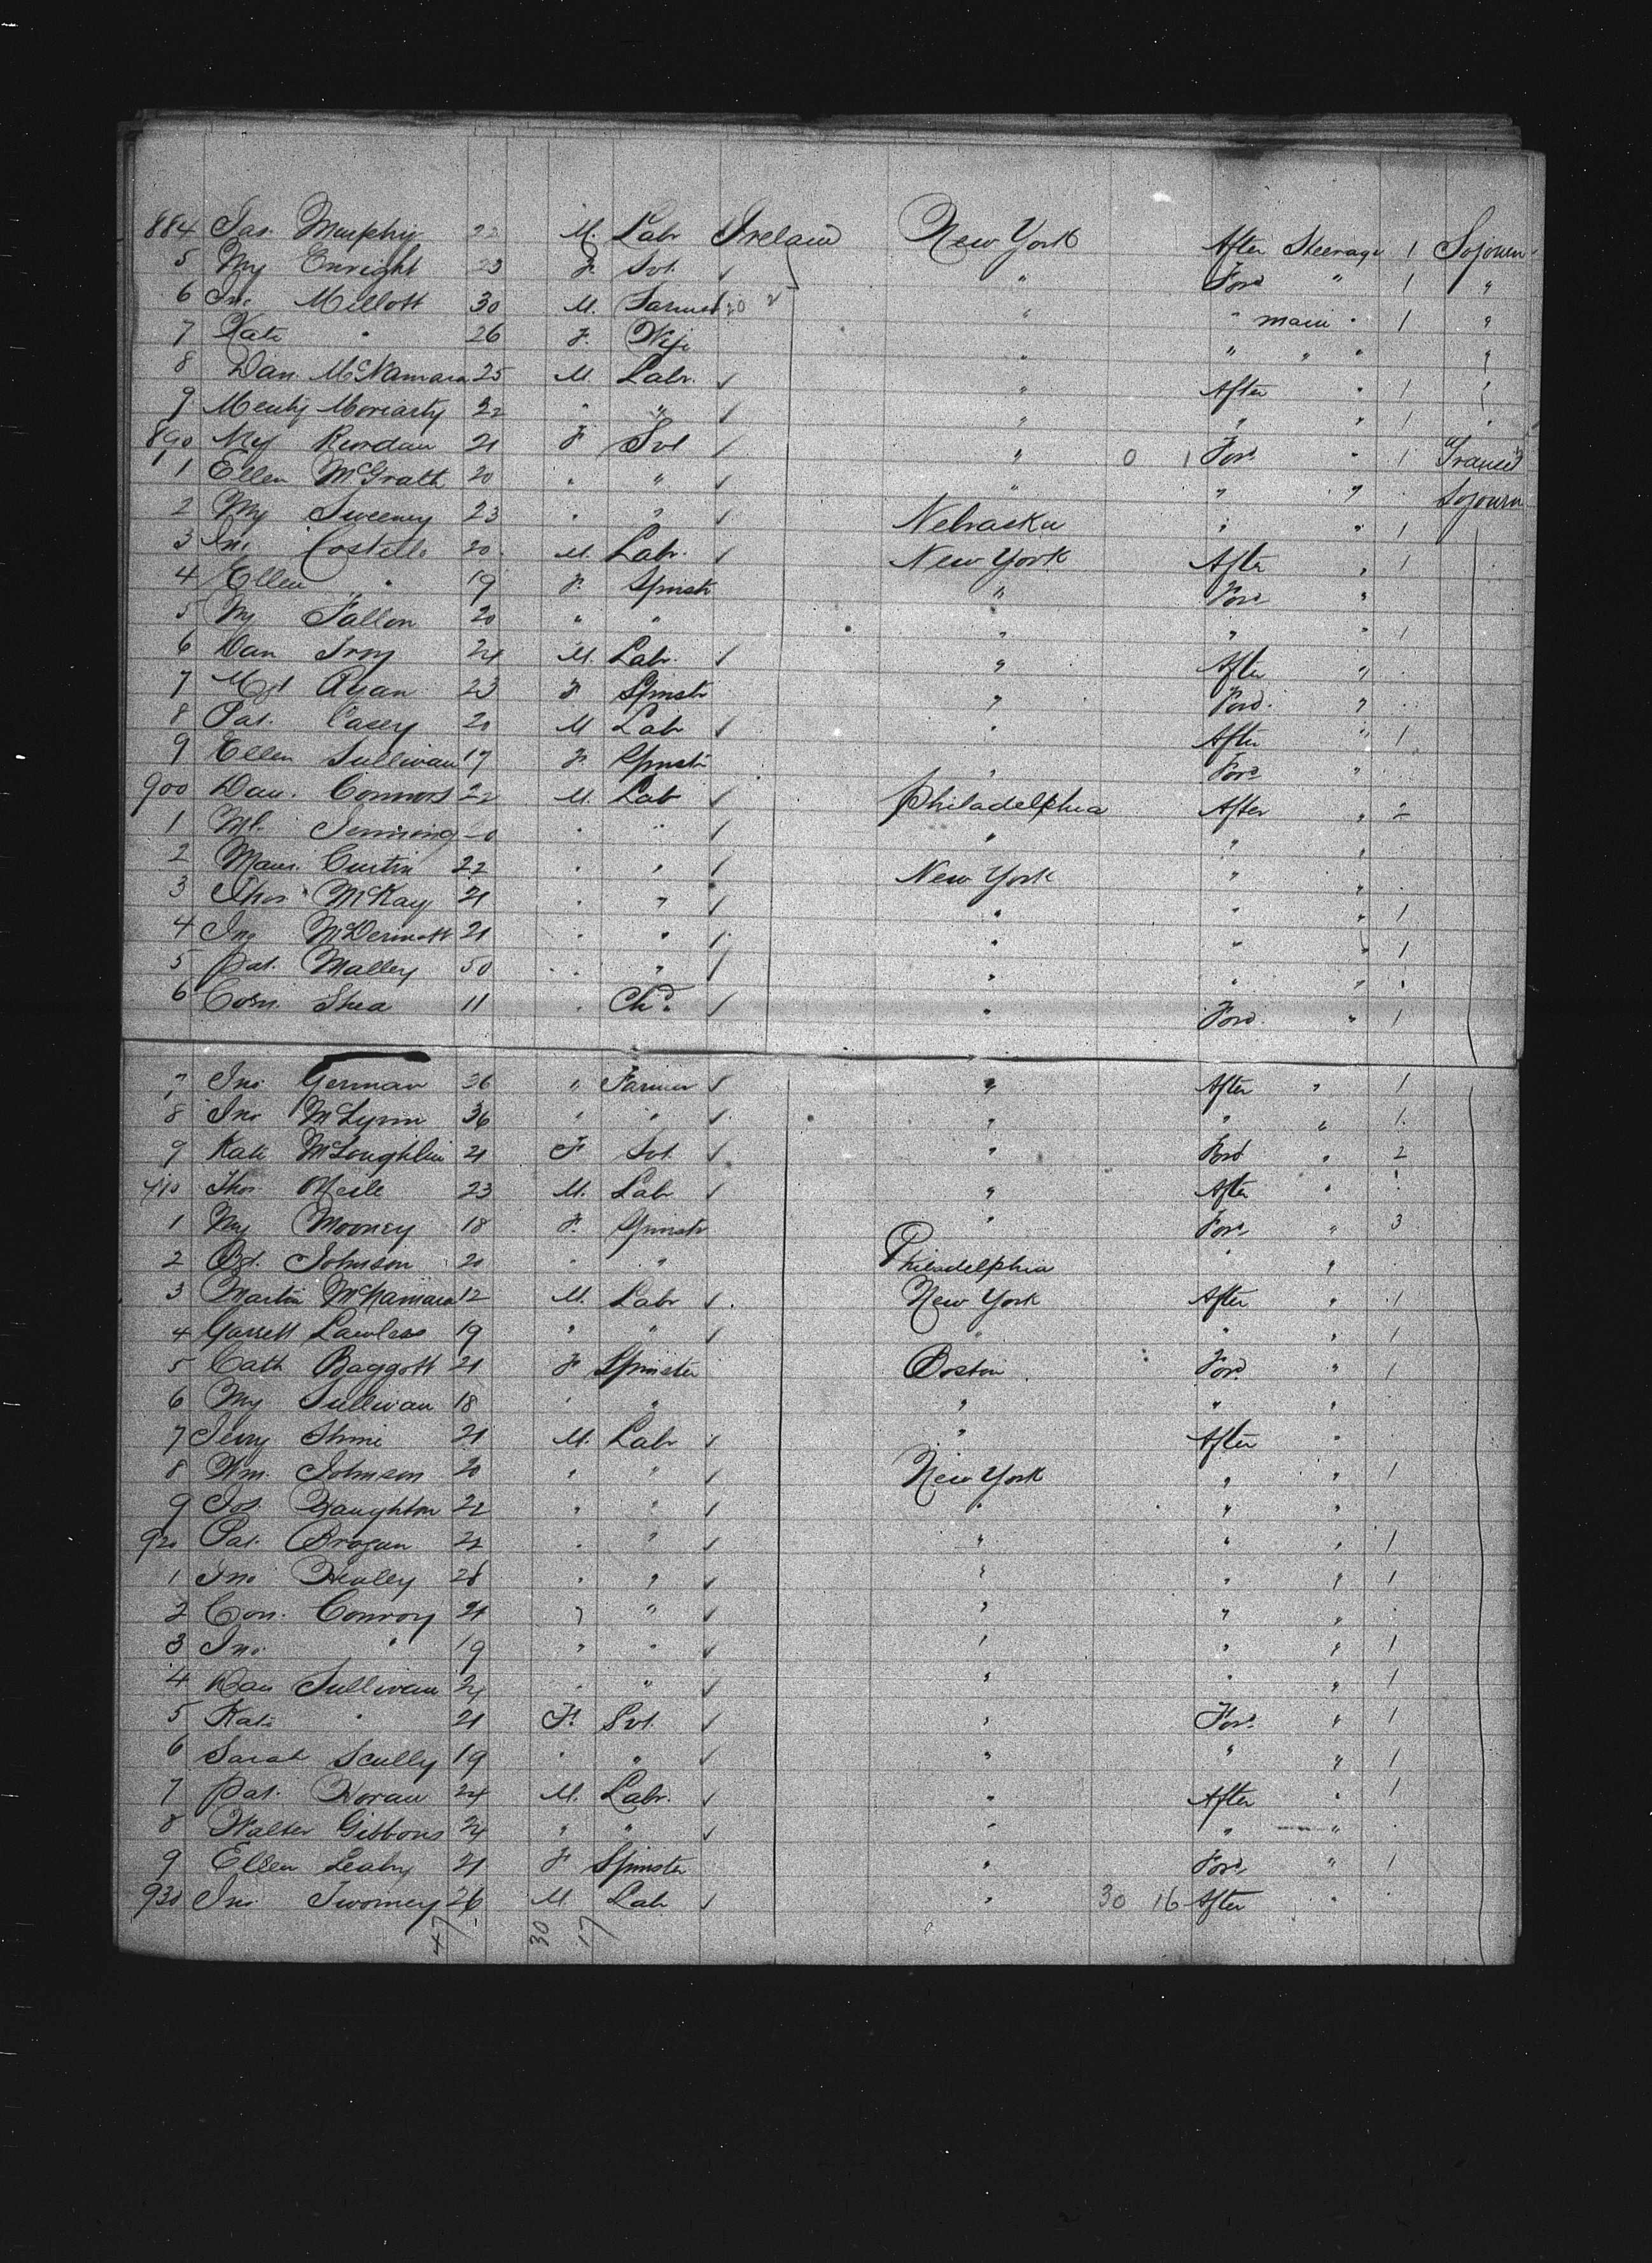 884 Jas. Murphy 22 M. Labr Ireland New York After Steerage 1 Sojourn
5 My Enright 23 F. Svt. ✓ " Ford " 1 "
6 Jno Millott 30 M. Farmer 20 2 " " main " 1 "
7 Kate " 26 F. Wife " " " " "
8 Dan. McNamara 25 M. Labr. ✓ " After " 1
9 Moriarty 22 " " ✓ " " " 1 "
890 My Riordan 21 F Svt ✓ " 0 1 Ford " 1 Transit
1 Ellen McGrath 20 " " ✓ " " " Sojourn
2 My Sweeney 23 " " ✓ Nebraska " " 1
3 Jno Costello 20 M. Labr. ✓ New York After " 1
4 Ellen " 19 F. Spinstr " Ford "
5 My Fallon 20 " " " " " 1
6 Dan Troy 24 M. Labr. ✓ " After "
7 Mgt Ryan 23 F Spinstr " Ford. "
8 Pat. Casey 20 M Labr ✓ " After " 1
9 Ellen Sullivan 17 F. Spinstr " Ford "
900 Dan. Connors 22 M. Lab ✓ Philadelphia After " 2
1 Ml. Jennings 20 " " ✓ " " "
2 Maur. Curtin 22 " " ✓ New York " "
3 Thos McKay 21 " " ✓ " " " 1
4 Jno McDermott 21 " " ✓ " " " 1
5 Pat. Malley 50 " " ✓ " " "
6 Corn. Shea 11 " Chd. ✓ " Ford. " 1
7 Jno. Gorman 36 " Farmer ✓ " After " 1
8 Jno McLynn 36 " " ✓ " " " 1
9 Kate McLoughlin 21 F Svt. ✓ " Ford " 2
910 Thos 23 M. Labr ✓ " After "
1 My Mooney 18 F. Spinstr " Ford " 3
2 Bd. Johnson 20 " " Philadelphia " "
3 Martin McNamara 12 M. Labr ✓ New York After " 1
4 Garrett Lawless 19 " " ✓ " " " 1
5 Cath Baggott 21 F Spinster Boston Ford " 1
6 My Sullivan 18 " " " " "
7 Jerry 21 M. Labr ✓ " After "
8 Wm. Johnson 20 " " ✓ New York " " 1
9 Jos. Naughton 22 " " ✓ " " "
920 Pat. Brogan 22 " " ✓ " " " 1
1 Jno Healey 28 " " ✓ " " " 1
2 Con. Conroy 21 " " ✓ " " "
3 Jno. " 19 " " ✓ " " " 1
4 Dan Sullivan 24 " " ✓ " " " 1
5 Kate " 21 F. Svt. ✓ " Ford " 1
6 Sarah Scully 19 " " ✓ " " " 1
7 Pat. Horan 24 M. Labr. ✓ " After " 1
8 Walter Gibbons 24 " " ✓ " " "
9 Ellen Leahy 21 F Spinster " Ford " 1
930 Jno. Twomey 26 M Lab ✓ " 30 16 After "
47 30 17